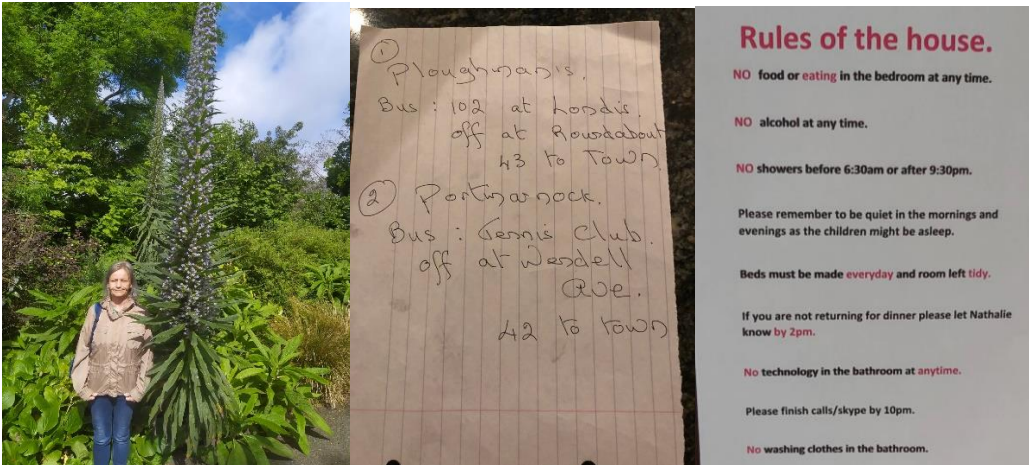 1
Ploughman's.
Bus : 102 at Londis.
off at Roundabout
43 to Town
2 Portmarnock.
Bus : Tennis Club.
off at Wendell
Ave.
42 to town
Rules of the house.
NO food or eating in the bedroom at any time.
NO alcohol at any time.
NO showers before 6:30am or after 9:30pm.
Please remember to be quiet in the mornings and
evenings as the children might be asleep.
Beds must be made everyday and room left tidy.
If you are not returning for dinner please let Nathalie
know by 2pm.
No technology in the bathroom at anytime.
Please finish calls/skype by 10pm.
No washing clothes in the bathroom.